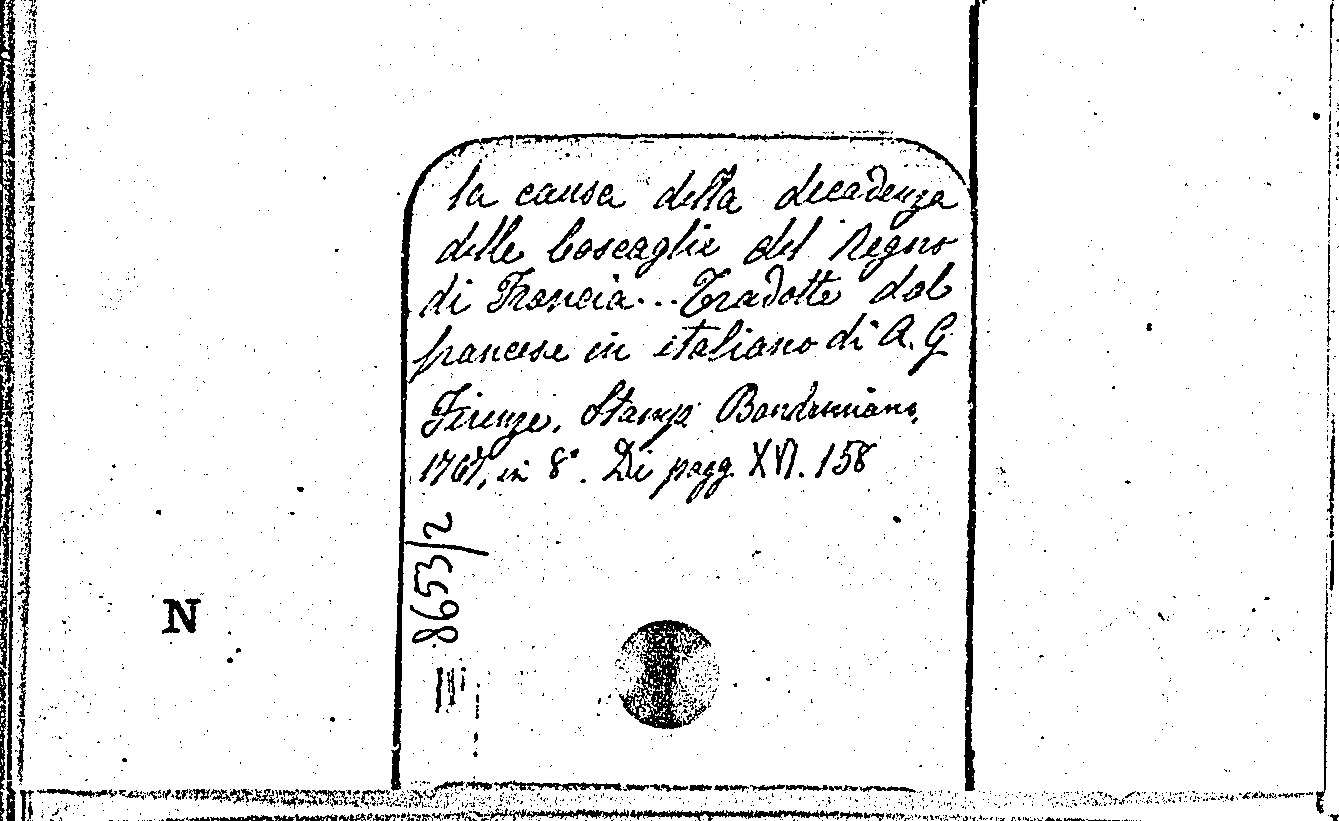 la causa della decadenza
delle boscaglie del Regno
di Francia... Tradotte dal
francese in italiano di A. G
Firenze, Stamp. Bonducciana,
1767, in 8°. Di pagg. XVI. 158
8653/2
N